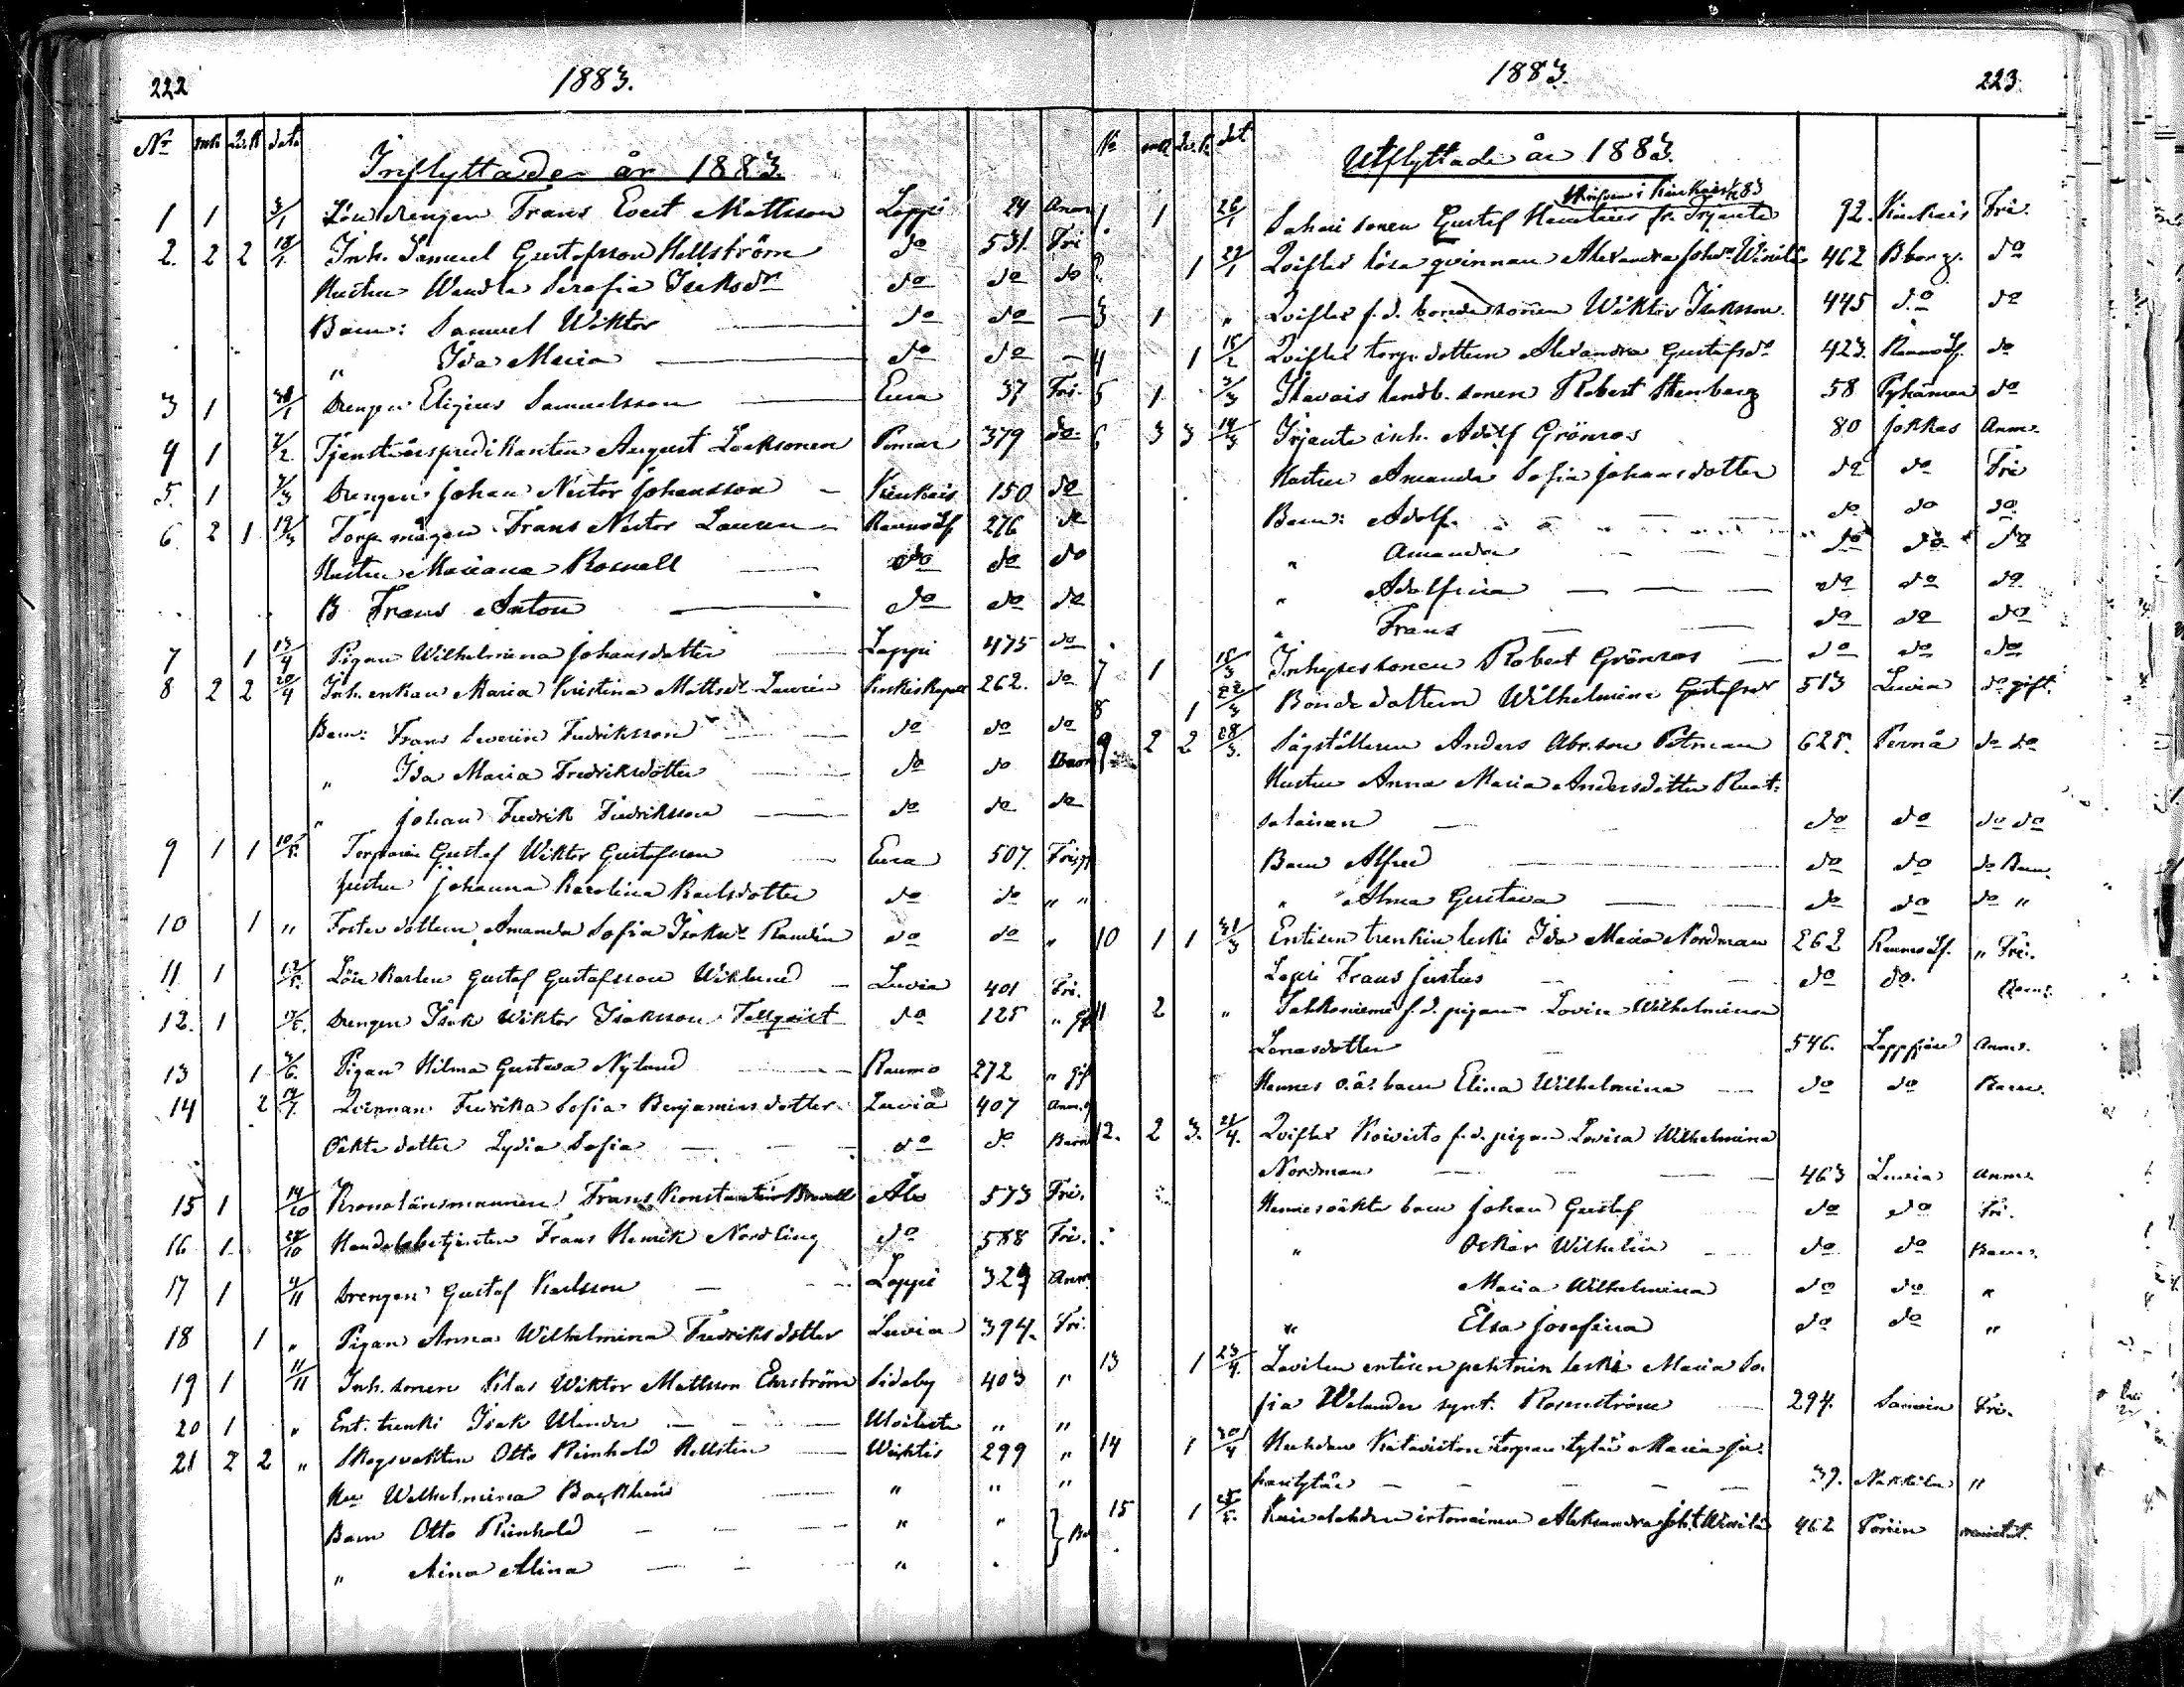 222 1883.
No mk Qv.k dato
Inflyttade år 1883.
1 1 3/1 Frans Evert Mattsson Lappi 24 Anm
2. 2 2 18/1 Inh. Samuel Gustafsson Hellström do 531. Fri
Hustru Wendla Serafia Isaksdr do do do
Barn: Samuel Wiktor do do
" Ida Maria do do
3 1 Drengen Eligius Samuelsson Eura 37 Fri.
4 1 7/2 Tjensteårspredikanten August Laaksonen Pimar 379 do
5. 1 7/3 Drengen Johan Nestor Johansson Kiukais 150 do
6. 2 1 19/3 Torp. mågen Frans Nestor Lauren Raumo Lf 276 do
Hustru Mariana Rosnell do do do
B Frans Anton do do do
7 1 13/4 Pigan Wilhelmina Johansdotter Lappi 475 do
8 2 2 20/4 Inh. enkan Maria Kristina Mattsdr Laurén 262. do
Barn: Frans Severin Fredriksson do do do
" Ida Maria Fredriksdotter do do Barn
" Johan Fredrik Fredriksson do do do
9 1 1 10/5. Torparen Gustaf Wiktor Gustafsson Eura 507. Fri gf
Hustru Johanna Karolina Karlsdotter do do " "
10 1 " Fosterdottern Amanda Sofia Isaksdr Randén do do "
11 1 Gustaf Gustafsson Wiklund Luvia 401 Fri.
12. 1 Drengen Isak Wiktor Isaksson Tallqvist do 125 "
13 1 4/6. Pigan Hilma Gustava Nylund Raumo 272 " gif
14 2 14/7. Qvinnan Fredrika Sofia Benjaminsdotter Luvia 407 Anm.
Oäkta dotter Lydia Sofia do do Barn
15 1 14/10 Kronolänsmannen Frans Konstantin Åbo 573 Fri.
16 1 24/10 Handelsbetjenten Frans Henrik Nordling do 588 Fri.
17 1 4/11 Drengen Gustaf Karlsson Lappi 329 Anm
18 1 " Pigan Anna Wilhelmina Fredriksdotter Luvia 394. Fri.
19 1 11/11 Inh. sonen Silas Wiktor Mattsson Ehrström Sideby 403 "
20 1 " Ent. trenki Isak Ulander " "
21 2 2 " Skogsvakten Otto Reinhold Hellsten Wichtis 299 "
Hu Wilhelmina " " "
Barn Otto Reinhold " " Ba
" Aina Alina "
1883. 223.
No mk Qv.k. dat
Utflyttade år 1883.
1. 1 26/1 Gustaf fr. Irjanta 92. Kiukais Fri.
2. 1 27/1 Qvifler lösa qvinnan Alexandra Johdr 462 Bborg. do
3 1 " Qvifler f.d. bondesonen Wiktor Isaksson. 445 do do
4 1 15/2 Qvifler torp. dottern Alexandra Gustafsdr 423. Raumo Lf. do
5 1 3/3 landb. sonen Robert Stenberg 58 Pyhämaa do
6 3 3 14/3 Irjanta inh. Adolf Grönros 80 Jokkas Anm.
Hustru Amanda Sofia Johansdotter do do Fri
Barn: Adolf do do do.
" Amanda do do do
" Adolfina do do do
" Frans do do do
7 1 15/3 Inhysessonen Robert Grönros do do do
8 1 22/3 Bondedottern Wilhelmina Gustafsdr 513 Luvia do gift.
9. 2 2 28/3. Sågställaren Anders Abr.son Petman 625. Pernå do do
Hustru Anna Maria Andersdotter Ruot-
salainen do do do do
Barn Alfred do do do Barn.
" Alma Gustava do do do "
10 1 1 31/3 Entisen trenkin leski Ida Maria Nordman 262 Raumo Lf. " Fri.
Lapsi Frans Justus do do. Barn.
11 2 " f.d. pigan Lovisa Wilhelmina
Lenasdotter 546. Anm.
Hennes o.ä. barn Elina Wilhelmina do do Barn.
12. 2 3. 21/4. Qvifler Koivisto f.d. pigan Lovisa Wilhelmina
Nordman 463 Luvia Anm.
Hennes oäkta barn Johan Gustaf do do Fri.
" Oskar Wilhelm do do Barn.
Maria Wilhelmina do do "
" Elsa Josefina do do "
13 1 23/4. Lavilan entisen leski Maria So-
fia Welander synt. Rosenström 294. Fri.
14 1 30/4 torpan tytär Maria Ju-
hantytär 39. Nakkila "
15 1 irtonainen Aleksandra 462 Poriin